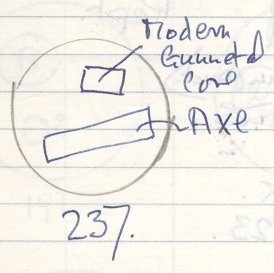 Modern
Gunmetal
Core
Axe
237.